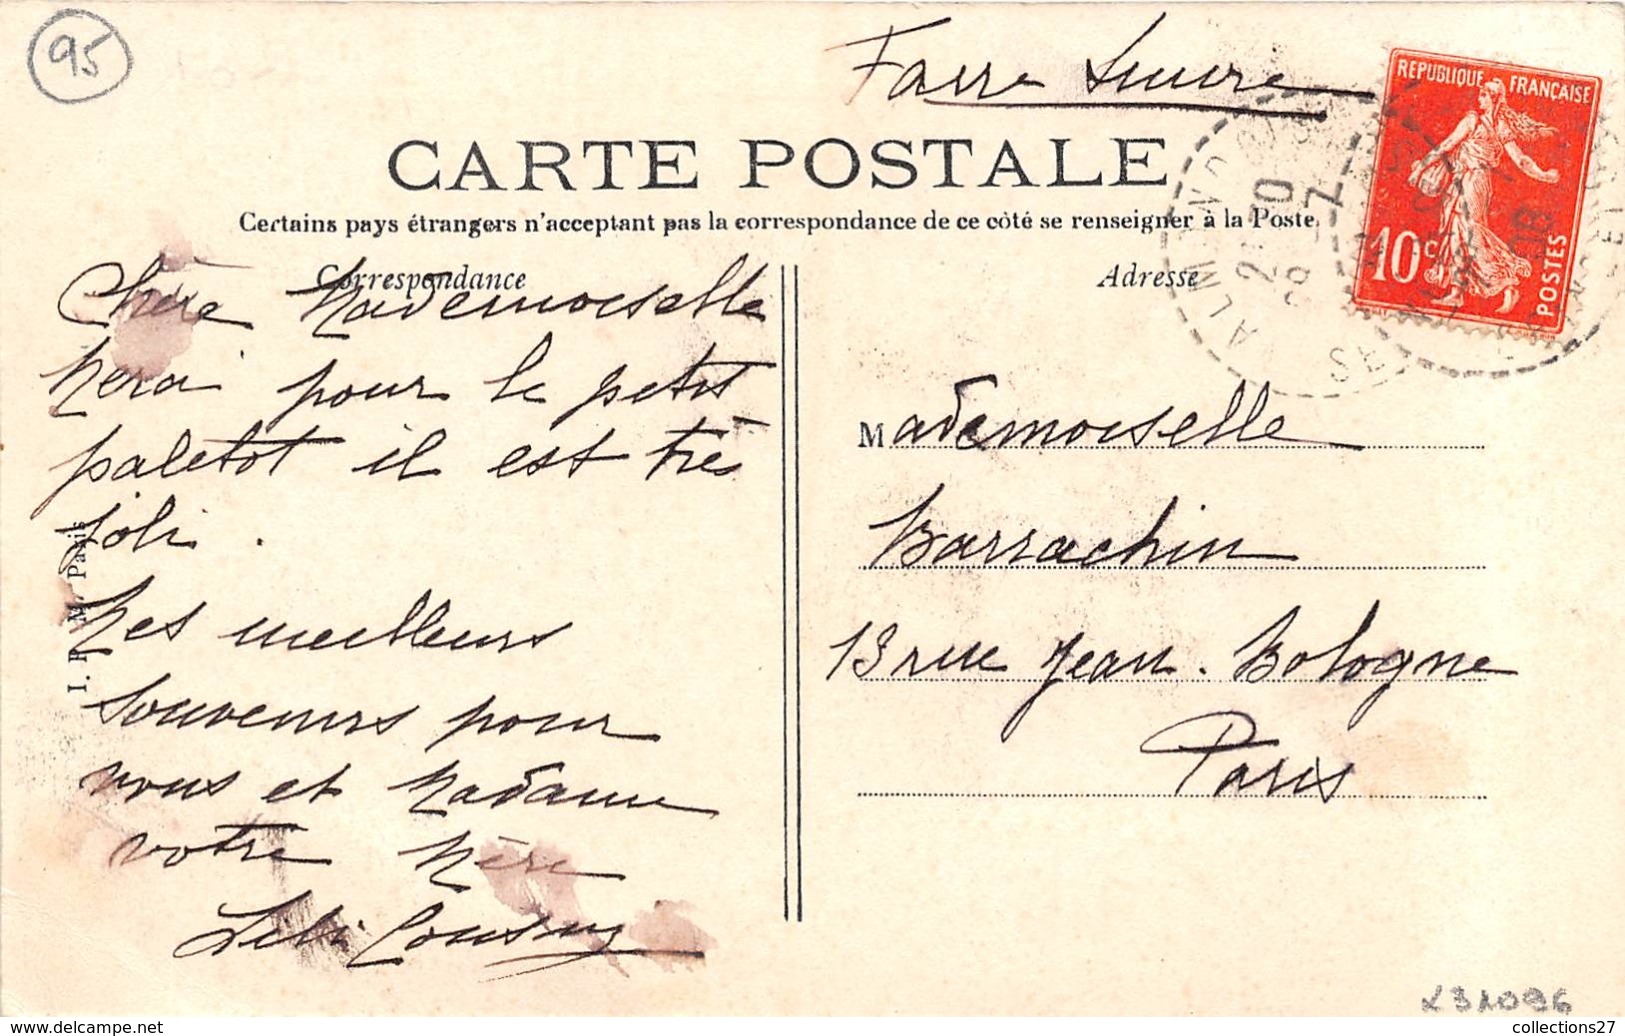 95
Faire Suivre
REPUBLIQUE FRANÇAISE
10c
POSTES
CARTE POSTALE
Certains pays étrangers n'acceptant pas la correspondance de ce côté se renseigner à la Poste.
Correspondance
Adresse
Chère Mademoiselle
Merci pour le petit
paletot il est très
joli.
Mes meilleurs
souvenirs pour
vous et Madame
votre Mère
Lili
Mademoiselle
Barrachin
13 rue Jean. Bologne
Paris
Paris
collections27